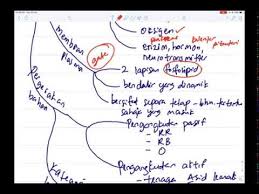 oksigen
enzim, hormon,
neurotransmitter
Membran
Plasma
gate
2 lapisan fosfolipid
bendalir yang dinamik
bersifat separa telap - bhn tertentu
sahaja yang masuk
Pergerakan
bahan
Pengangkutan pasif
- RR
- RB
- O
Pengangkutan aktif
- tenaga